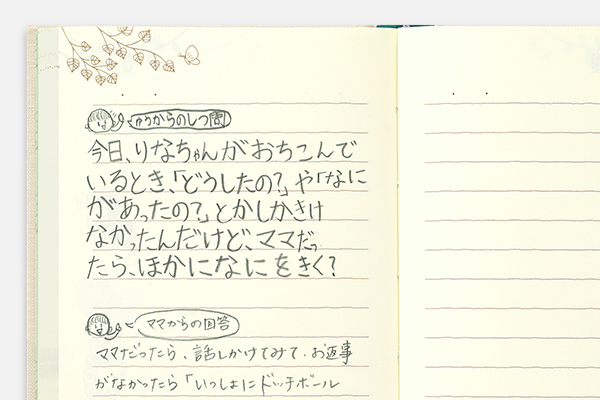 ゆうからのしつ問
今日、りなちゃんがおちこんで
いるとき、「どうしたの?」や「なに
があったの?」とかしかきけ
なかったんだけど、ママだっ
たら、ほかになにをきく?
ママからの回答
ママだったら、話しかけてみて、お返事
がなかったら「いっしょにドッチボール